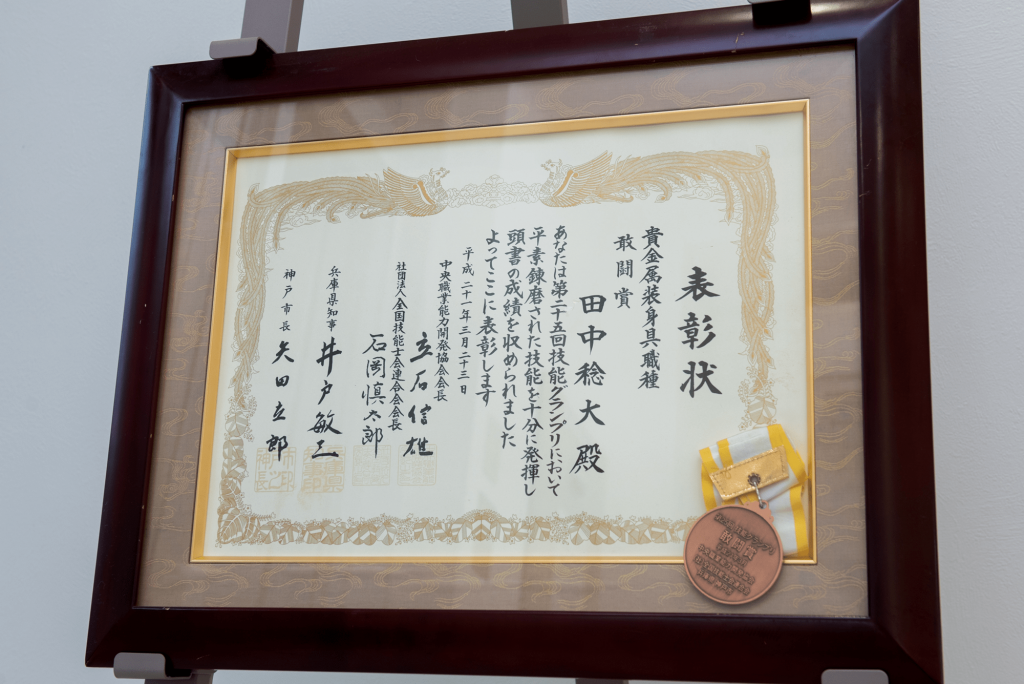 表彰状
貴金属装身具職種
敢闘賞
田中稔大殿
あなたは第二十五回技能グランプリにおいて
平素錬磨された技能を十分に発揮し
頭書の成績を収められました
よってここに表彰します
平成二十一年三月二十三日
中央職業能力開発協会会長
立石信雄
社団法人全国技能士会連合会会長
石岡慎太郎
兵庫県知事
井戸敏三
神戸市長
矢田立郎
敢闘賞